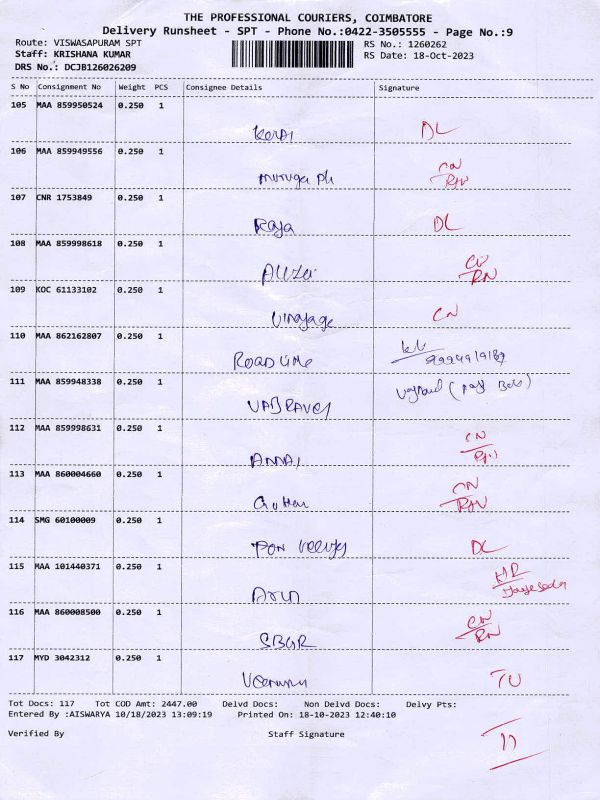 THE PROFESSIONAL COURIERS, COIMBATORE
Delivery Runsheet - SPT - Phone No.:0422-3505555 - Page No.:9
Route: VISWASAPURAM SPT RS No.: 1260262
Staff: KRISHANA KUMAR RS Date: 18-Oct-2023
DRS No.: DCJB126026209
S No Consignment No Weight PCS Consignee Details Signature
105 MAA 859950524 0.250 1
DL
106 MAA 859949556 0.250 1
CN
RN
107 CNR 1753849 0.250 1
Raja DL
108 MAA 859998618 0.250 1
CN
RN
109 KOC 61133102 0.250 1
Vinayaga CN
110 MAA 862162807 0.250 1
ROADLINE
111 MAA 859948338 0.250 1
112 MAA 859998631 0.250 1
CN
ANNAI RN
113 MAA 860004660 0.250 1
CN
RN
114 SMG 60100009 0.250 1
PON DL
115 MAA 101440371 0.250 1
Arun
116 MAA 860008500 0.250 1
CN
SBGR RN
117 MYD 3042312 0.250 1
TU
Tot Docs: 117 Tot COD Amt: 2447.00 Delvd Docs: Non Delvd Docs: Delvy Pts:
Entered By :AISWARYA 10/18/2023 13:09:19 Printed On: 18-10-2023 12:40:10
Verified By Staff Signature